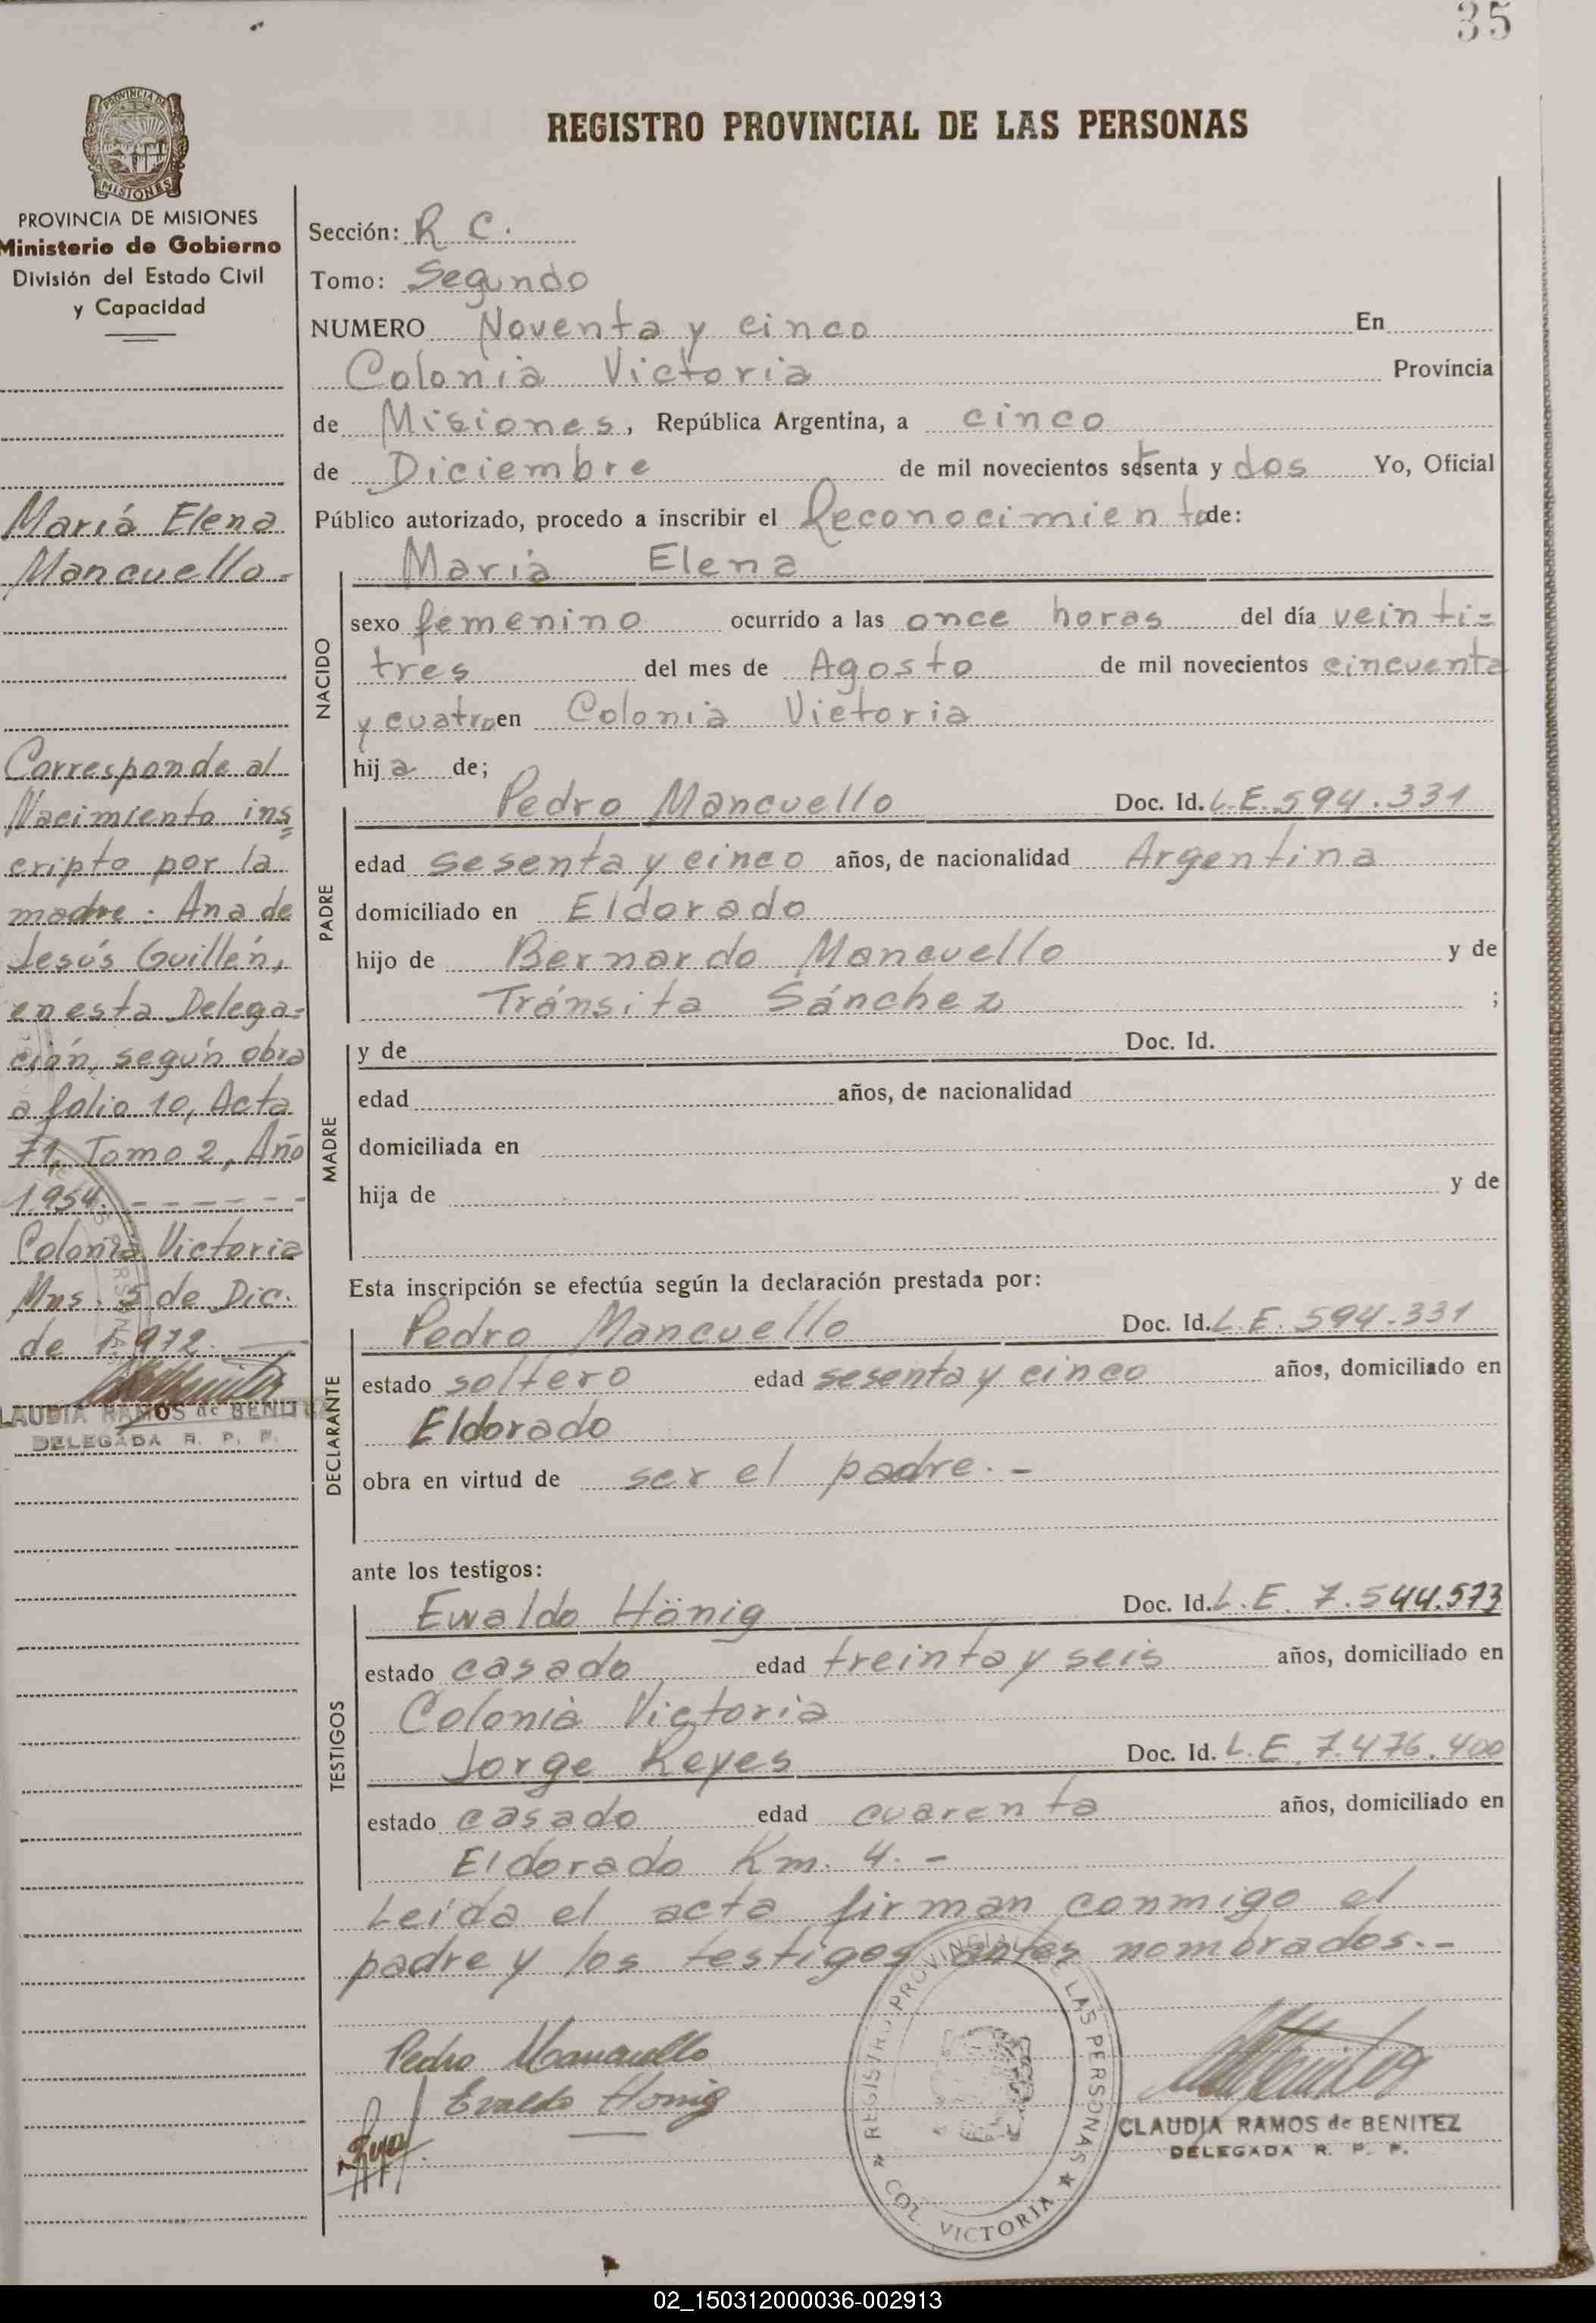 35
PROVINCIA DE
MISIONES
PROVINCIA DE MISIONES
Ministerio de Gobierno
División del Estado Civil
y Capacidad
María Elena
Mancuello.-
Corresponde al
Nacimiento ins=
cripto por la
madre: Ana de
Jesús Guillén,
en esta Delega=
ción, según obra
a folio 10, Acta
71, Tomo 2, Año
1.954. - - - - - -
Colonia Victoria
Mns. 5 de Dic.
de 1972.
CLAUDIA RAMOS de BENITEZ
DELEGADA R. P. P.
REGISTRO PROVINCIAL DE LAS PERSONAS
Sección: R C.
Tomo: Segundo
NUMERO Noventa y cinco En
Colonia Victoria Provincia
de Misiones, República Argentina, a cinco
de Diciembre de mil novecientos setenta y dos Yo, Oficial
Público autorizado, procedo a inscribir el Reconocimiento de:
María Elena
NACIDO
sexo femenino ocurrido a las once horas del día veinti=
tres del mes de Agosto de mil novecientos cincuenta
y cuatro en Colonia Victoria
hija de;
PADRE
Pedro Mancuello Doc. Id. L.E. 594.331
edad sesenta y cinco años, de nacionalidad Argentina
domiciliado en Eldorado
hijo de Bernardo Mancuello y de
Tránsita Sánchez ;
MADRE
y de Doc. Id.
edad años, de nacionalidad
domiciliada en
hija de y de
Esta inscripción se efectúa según la declaración prestada por:
DECLARANTE
Pedro Mancuello Doc. Id. L.E. 594.331
estado soltero edad sesenta y cinco años, domiciliado en
Eldorado
obra en virtud de ser el padre.-
ante los testigos:
TESTIGOS
Ewaldo Hönig Doc. Id. L.E. 7.544.573
estado casado edad treinta y seis años, domiciliado en
Colonia Victoria
Jorge Reyes Doc. Id. L.E. 7.476.400
estado casado edad cuarenta años, domiciliado en
Eldorado Km. 4.-
Leída el acta firman conmigo el
padre y los testigos antes nombrados.-
Pedro Mancuello
Evaldo Honig
REGISTRO PROVINCIAL DE LAS PERSONAS
COL. VICTORIA
CLAUDIA RAMOS de BENITEZ
DELEGADA R. P. P.
02_150312000036-002913